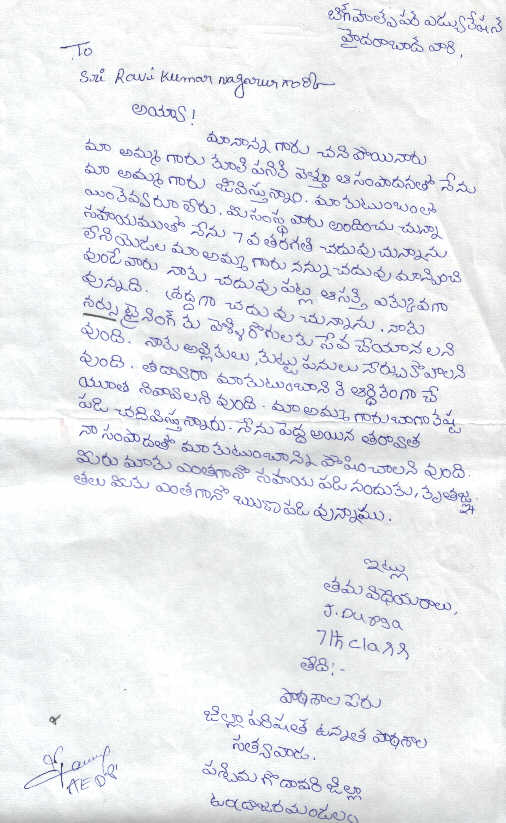 బిగ్ హెల్ప్ ఫర్ ఎడ్యుకేషన్
హైదరాబాద్ వారి,
To
Sri Ravi Kumar Nagarur గారికి
అయ్యా!
మానాన్న గారు చనిపోయినారు
మా అమ్మ గారు కూలి పనికి వెళ్తూ ఆ సంపాదనతో నేను
మా అమ్మ గారు జీవిస్తున్నాం. మా కుటుంబంలో
యింకెవ్వరూ లేరు. మీ సంస్థ వారు అందించు చున్నా
సహాయముతో నేను 7వ తరగతి చదువు చున్నాను
లేనియెడల మా అమ్మ గారు నన్ను చదువు మాన్పించి
వుండేవారు నాకు చదువు పట్ల ఆసక్తి ఎక్కువగా
వున్నది. శ్రద్దగా చదువు చున్నాను. నాకు
నర్సు ట్రైనింగ్ కు వెళ్ళి రోగులకు సేవ చేయాలని
వుంది. నాకు అల్లికలు, కుట్టు పనులు నేర్చుకోవాలని
వుంది. తద్వారా మాకుటుంబానికి ఆర్థికంగా చే
యూత నివ్వాలని వుంది. మా అమ్మ గారు బాగా కష్ట
పడి చదివిస్తున్నారు. నేను పెద్ద అయిన తరువాత
నా సంపాదతో మా కుటుంబాన్ని పోషించాలని వుంది.
మీరు మాకు ఎంతగానో సహాయ పడి నందుకు, కృతజ్ఞ
తలు మీకు ఎంతగానో ఋణపడి వున్నాము.
ఇట్లు
తమ విధేయరాలు,
J. Durga
7th class
తేది:-
పాఠశాల పేరు
జిల్లా పరిషత్ ఉన్నత పాఠశాల
సత్యవాడ.
పశ్చిమ గోదావరి జిల్లా
ఉండ్రాజవర మండలం
AEDP